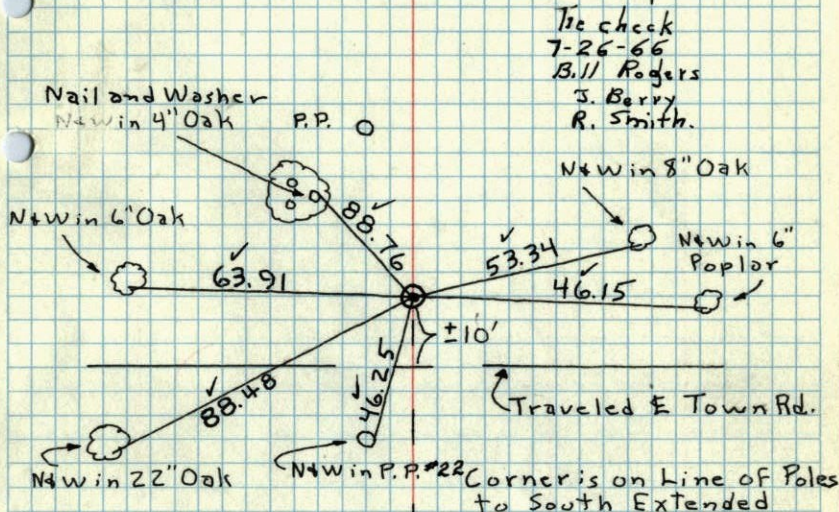 Tie check
7-26-66
Bill Rogers
J. Berry
R. Smith.
Nail and Washer
N&W in 4" Oak
P.P.
N&W in 8" Oak
N&W in 6" Oak
N&W in 6"
Poplar
88.76
53.34
63.91
46.15
±10'
88.48
46.25
Traveled E Town Rd.
N&W in 22" Oak
N&W in P.P. #22
Corner is on Line of Poles
to South Extended